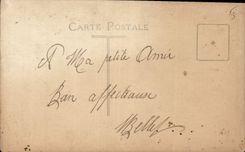 CARTE POSTALE
A Ma ptite Amie
Bon affectueuse